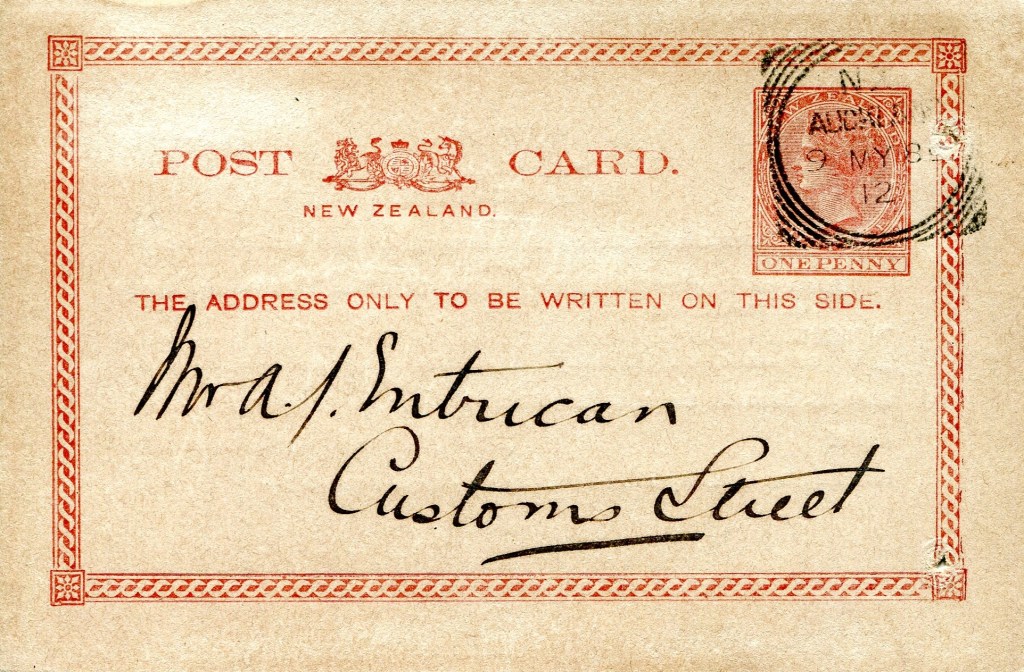 POST CARD.
NEW ZEALAND.
ONE PENNY
9 MY 8
12
THE ADDRESS ONLY TO BE WRITTEN ON THIS SIDE.
Mr A. J. Entrican
Customs Street